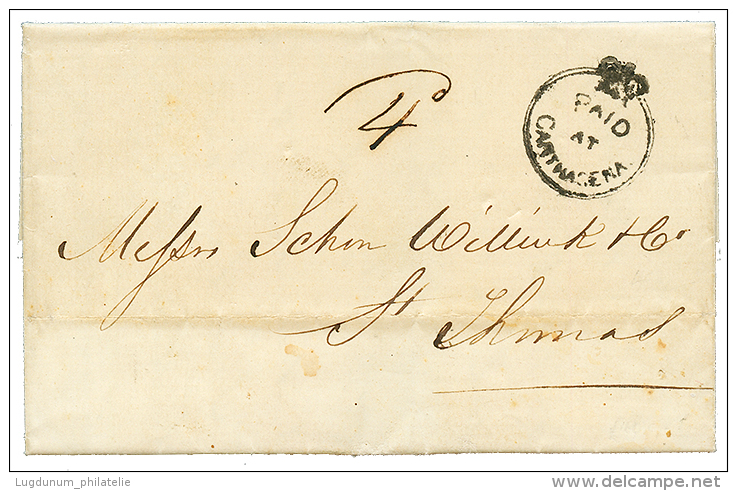 4d
PAID
AT
CARTHAGENA
Messrs Schön Willink & Co.
St Thomas
Lugdunum_philatelie
delcampe.net